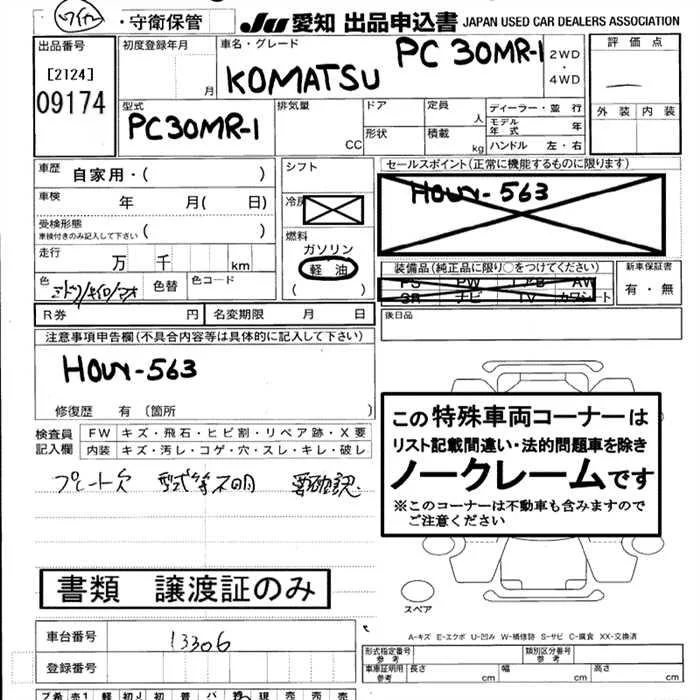 ワイヤー ・守衛保管 Ju 愛知 出品申込書 JAPAN USED CAR DEALERS ASSOCIATION
出品番号 初度登録年月 車名・グレード PC 30MR-1 2WD 評価点
[2124] 月 KOMATSU ・
09174 4WD
型式 排気量 ドア 定員 ディーラー・並行 外装 内装
PC30MR-1 人 モデル年式 年
CC 形状 積載 kg ハンドル 左・右
車歴 自家用・( ) シフト セールスポイント(正常に機能するものに限ります)
車検 年 月( 日) 冷房 HOUY-563
受検形態
車検付きのみ記入して下さい ( ) 燃料
走行 万 千 km ガソリン 装備品(純正品に限り○をつけてください) 新車保証書
色 色替 色コード 軽油 PS PW エアB AW 有・無
( ) SR ナビ TV カワシート
R券 円 名変期限 月 日 後日品
注意事項申告欄(不具合内容等は具体的に記入して下さい)
HOUY-563
修復歴 有 〔箇所 〕
この特殊車両コーナーは
リスト記載間違い・法的問題車を除き
ノークレームです
※このコーナーは不動車も含みますので
ご注意ください
検査員 FW キズ・飛石・ヒビ割・リペア跡・X要
記入欄 内装 キズ・汚レ・コゲ・穴・スレ・キレ・破レ
プレート欠 型式等不明 要確認
書類 譲渡証のみ
スペア
車台番号 13306
A-キズ E-エクボ U-凹み W-補修跡 S-サビ C-腐食 XX-交換済
登録番号
形式指定番号 参考 類別区分番号 参考
車庫証明用 参考 長さ cm 幅 cm 高さ cm